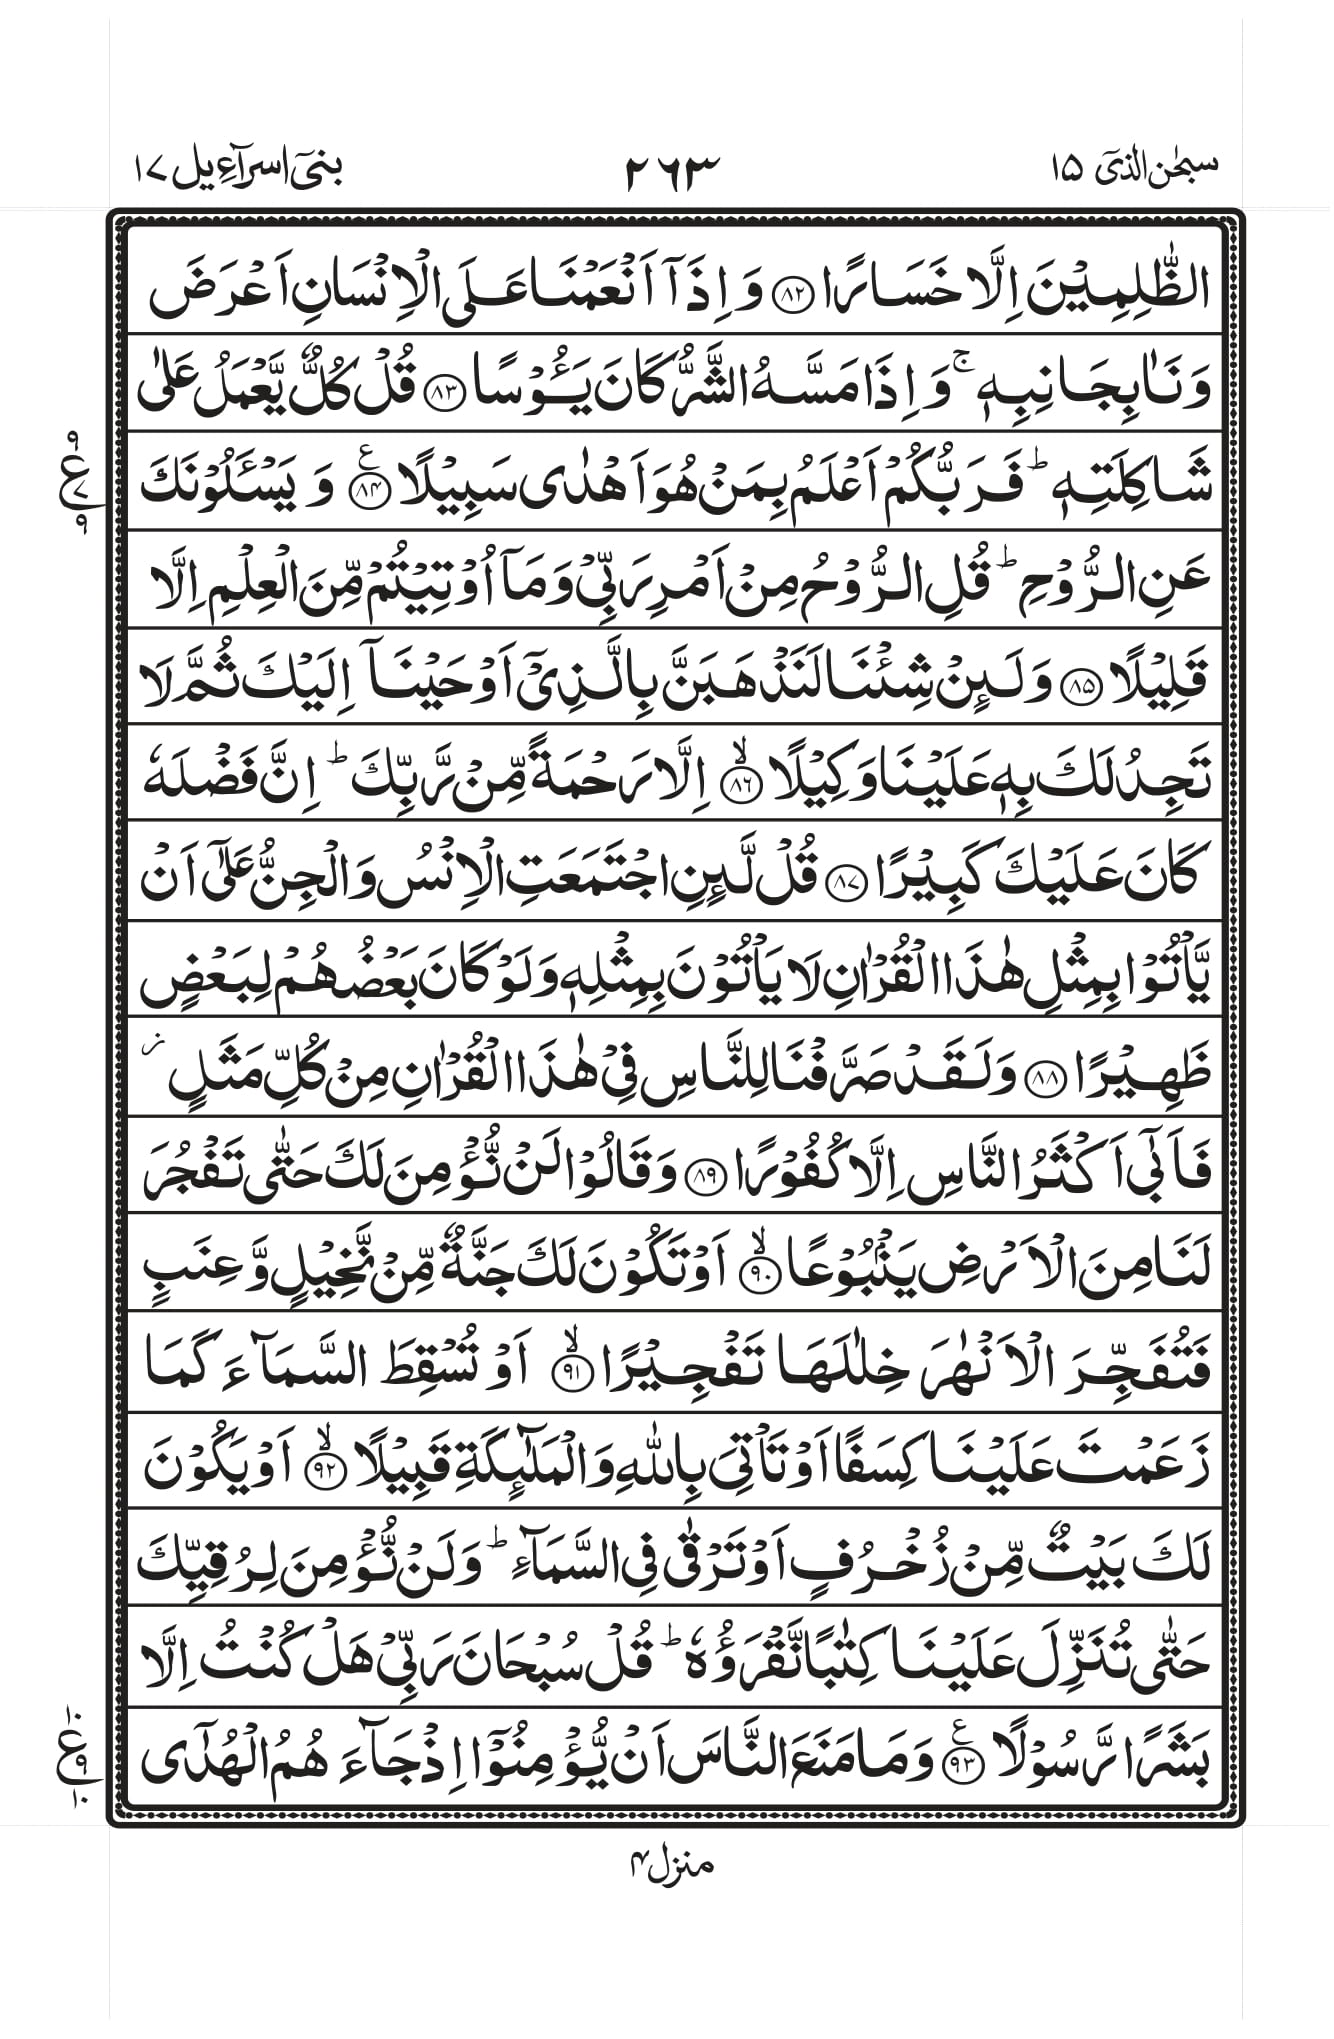 سبحٰن الذیٓ ۱۵
۲۶۳
بنیٓ اسرآءِیل ۱۷
الظّٰلِمِیْنَ اِلَّا خَسَارًا ۝۸۲ وَ اِذَاۤ اَنْعَمْنَا عَلَی الْاِنْسَانِ اَعْرَضَ
وَنَاٰ بِجَانِبِهٖ ۚ وَ اِذَا مَسَّهُ الشَّرُّ كَانَ یَـُٔوْسًا ۝۸۳ قُلْ كُلٌّ یَّعْمَلُ عَلٰی
شَاكِلَتِهٖ ؕ فَرَبُّكُمْ اَعْلَمُ بِمَنْ هُوَ اَهْدٰی سَبِیْلًا ۝۸۴ ع وَ یَسْـَٔلُوْنَكَ
عَنِ الرُّوْحِ ؕ قُلِ الرُّوْحُ مِنْ اَمْرِ رَبِّیْ وَ مَاۤ اُوْتِیْتُمْ مِّنَ الْعِلْمِ اِلَّا
قَلِیْلًا ۝۸۵ وَ لَىِٕنْ شِئْنَا لَنَذْهَبَنَّ بِالَّذِیْۤ اَوْحَیْنَاۤ اِلَیْكَ ثُمَّ لَا
تَجِدُ لَكَ بِهٖ عَلَیْنَا وَكِیْلًا ۝۸۶ ۙ اِلَّا رَحْمَةً مِّنْ رَّبِّكَ ؕ اِنَّ فَضْلَهٗ
كَانَ عَلَیْكَ كَبِیْرًا ۝۸۷ قُلْ لَّىِٕنِ اجْتَمَعَتِ الْاِنْسُ وَ الْجِنُّ عَلٰۤی اَنْ
یَّاْتُوْا بِمِثْلِ هٰذَا الْقُرْاٰنِ لَا یَاْتُوْنَ بِمِثْلِهٖ وَ لَوْ كَانَ بَعْضُهُمْ لِبَعْضٍ
ظَهِیْرًا ۝۸۸ وَ لَقَدْ صَرَّفْنَا لِلنَّاسِ فِیْ هٰذَا الْقُرْاٰنِ مِنْ كُلِّ مَثَلٍ ؗ
فَاَبٰۤی اَكْثَرُ النَّاسِ اِلَّا كُفُوْرًا ۝۸۹ وَ قَالُوْا لَنْ نُّؤْمِنَ لَكَ حَتّٰی تَفْجُرَ
لَنَا مِنَ الْاَرْضِ یَنْۢبُوْعًا ۝۹۰ ۙ اَوْ تَكُوْنَ لَكَ جَنَّةٌ مِّنْ نَّخِیْلٍ وَّ عِنَبٍ
فَتُفَجِّرَ الْاَنْهٰرَ خِلٰلَهَا تَفْجِیْرًا ۝۹۱ ۙ اَوْ تُسْقِطَ السَّمَآءَ كَمَا
زَعَمْتَ عَلَیْنَا كِسَفًا اَوْ تَاْتِیَ بِاللّٰهِ وَ الْمَلٰٓىِٕكَةِ قَبِیْلًا ۝۹۲ ۙ اَوْ یَكُوْنَ
لَكَ بَیْتٌ مِّنْ زُخْرُفٍ اَوْ تَرْقٰی فِی السَّمَآءِ ؕ وَ لَنْ نُّؤْمِنَ لِرُقِیِّكَ
حَتّٰی تُنَزِّلَ عَلَیْنَا كِتٰبًا نَّقْرَؤُهٗ ؕ قُلْ سُبْحَانَ رَبِّیْ هَلْ كُنْتُ اِلَّا
بَشَرًا رَّسُوْلًا ۝۹۳ ع وَ مَا مَنَعَ النَّاسَ اَنْ یُّؤْمِنُوْۤا اِذْ جَآءَ هُمُ الْهُدٰۤی
۹ ع ۷ ۹
۱۰ ع ۹ ۱۰
منزل ۴